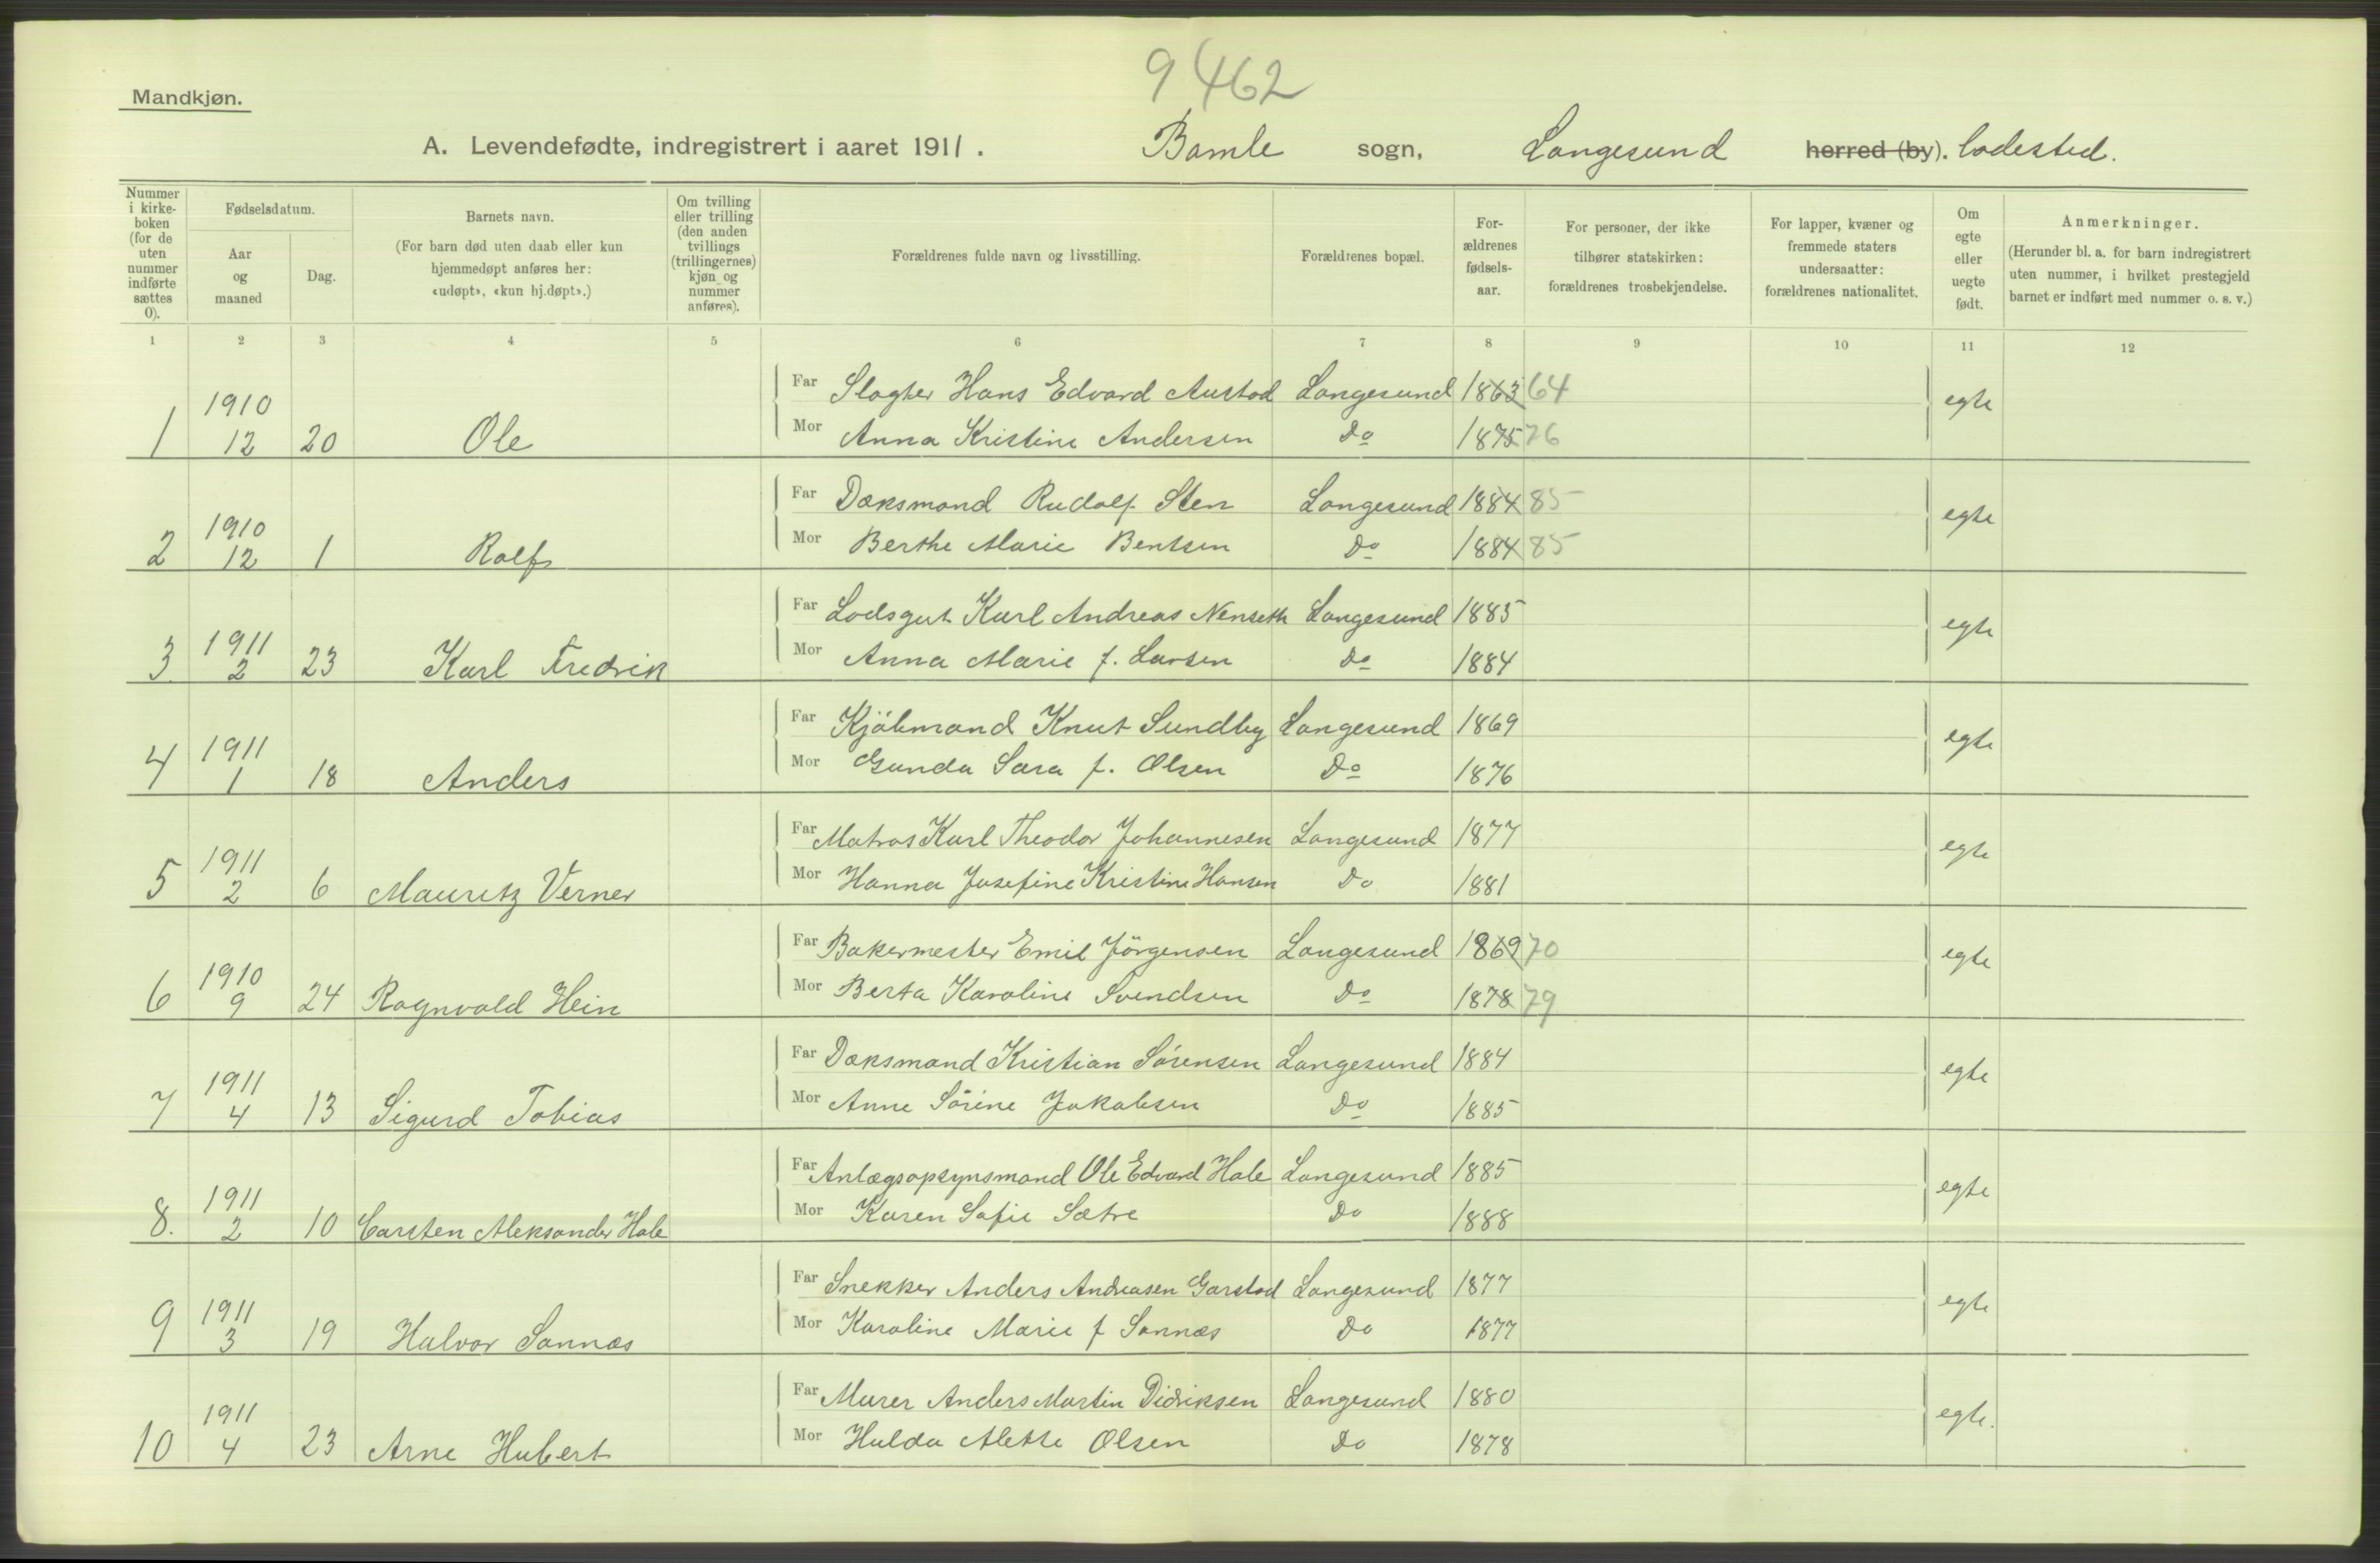 9 462
Mandkjøn.
A. Levendefødte, indregistrert i aaret 1911. Bamle sogn, Langesund herred (by). ladested.
Nummer i kirke-boken (for de uten nummer indførte sættes 0).
Fødselsdatum.
Aar og maaned
Dag.
Barnets navn.
(For barn død uten daab eller kun hjemmedøpt anføres her: «udøpt», «kun hj.døpt».)
Om tvilling eller trilling (den anden tvillings (trillingernes) kjøn og nummer anføres).
Forældrenes fulde navn og livsstilling.
Forældrenes bopæl.
For-ældrenes fødsels-aar.
For personer, der ikke tilhører statskirken: forældrenes trosbekjendelse.
For lapper, kvæner og fremmede staters undersaatter: forældrenes nationalitet.
Om egte eller uegte født.
Anmerkninger.
(Herunder bl. a. for barn indregistrert uten nummer, i hvilket prestegjeld barnet er indført med nummer o. s. v.)
1 2 3 4 5 6 7 8 9 10 11 12
1910 Far Slagter Hans Edvard Austad Langesund 1863 64 egte
1 12 20 Ole Mor Anna Kristine Andersen Do 1875 76
1910 Far Dæksmand Rudolf Sten Langesund 1884 85 egte
2 12 1 Rolf Mor Berthe Marie Bentsen Do 1884 85
1911 Far Lodsgut Karl Andreas Nenseth Langesund 1885 egte
3 2 23 Karl Fredrik Mor Anna Marie f. Larsen Do 1884
1911 Far Kjøbmand Knut Sundby Langesund 1869 egte
4 1 18 Anders Mor Gunda Sara f. Olsen Do 1876
1911 Far Matros Karl Theodor Johannesen Langesund 1877 egte
5 2 6 Mauritz Verner Mor Hanna Josefine Kristine Hansen Do 1881
1910 Far Bakermester Emil Jörgensen Langesund 1869 70 egte
6 9 24 Ragnvald Hein Mor Berta Karoline Svendsen Do 1878 79
1911 Far Dæksmand Kristian Sörensen Langesund 1884 egte
7 4 13 Sigurd Tobias Mor Anne Sörine Jakobsen Do 1885
1911 Far Anlægsopsynsmand Ole Edvard Hole Langesund 1885 egte
8. 2 10 Carsten Aleksander Hole Mor Karen Sofie Sætre Do 1888
1911 Far Snekker Anders Andreasen Garstad Langesund 1877 egte
9 3 19 Halvor Sannæs Mor Karoline Marie f Sannæs Do 1877
1911 Far Murer Anders Martin Didriksen Langesund 1880 egte.
10 4 23 Arne Hubert Mor Hulda Alette Olsen Do 1878